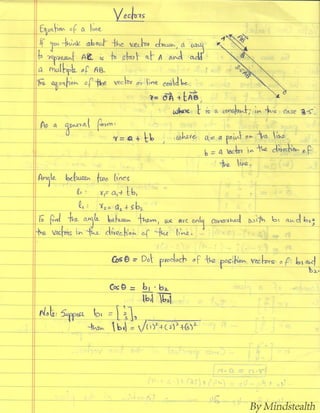 Vectors
Equation of a line
If you think about the vector drawn, a way
to represent AC is to start at A and add
a multiple of AB.
So equation of the vector or line could be
r = OA + tAB
where t is a constant, in this case 3.5.
As a general form:
r = a + tb, where a = a point on the line
b = a vector in the direction of
the line.
Angle between two lines
l₁: r₁ = a₁ + tb₁
l₂: r₂ = a₂ + sb₂
To find the angle between them, we are only concerned with b₁ and b₂,
the vectors in the direction of the line.
Cos θ = Dot product of the position vectors of b₁ and
b₂.
Cos θ = b₁ · b₂
|b₁| |b₂|
Note: Suppose b₁ =
then |b₁| =
By Mindstealth